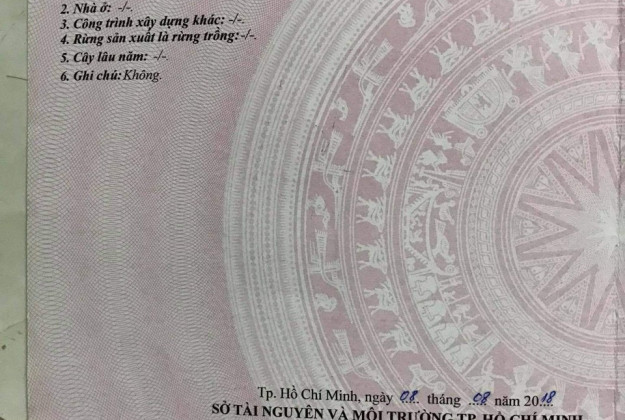 2. Nhà ở: -/-.
3. Công trình xây dựng khác: -/-.
4. Rừng sản xuất là rừng trồng: -/-.
5. Cây lâu năm: -/-.
6. Ghi chú: Không.
Tp. Hồ Chí Minh, ngày 08 tháng 08 năm 2018
SỞ TÀI NGUYÊN VÀ MÔI TRƯỜNG TP. HỒ CHÍ MINH